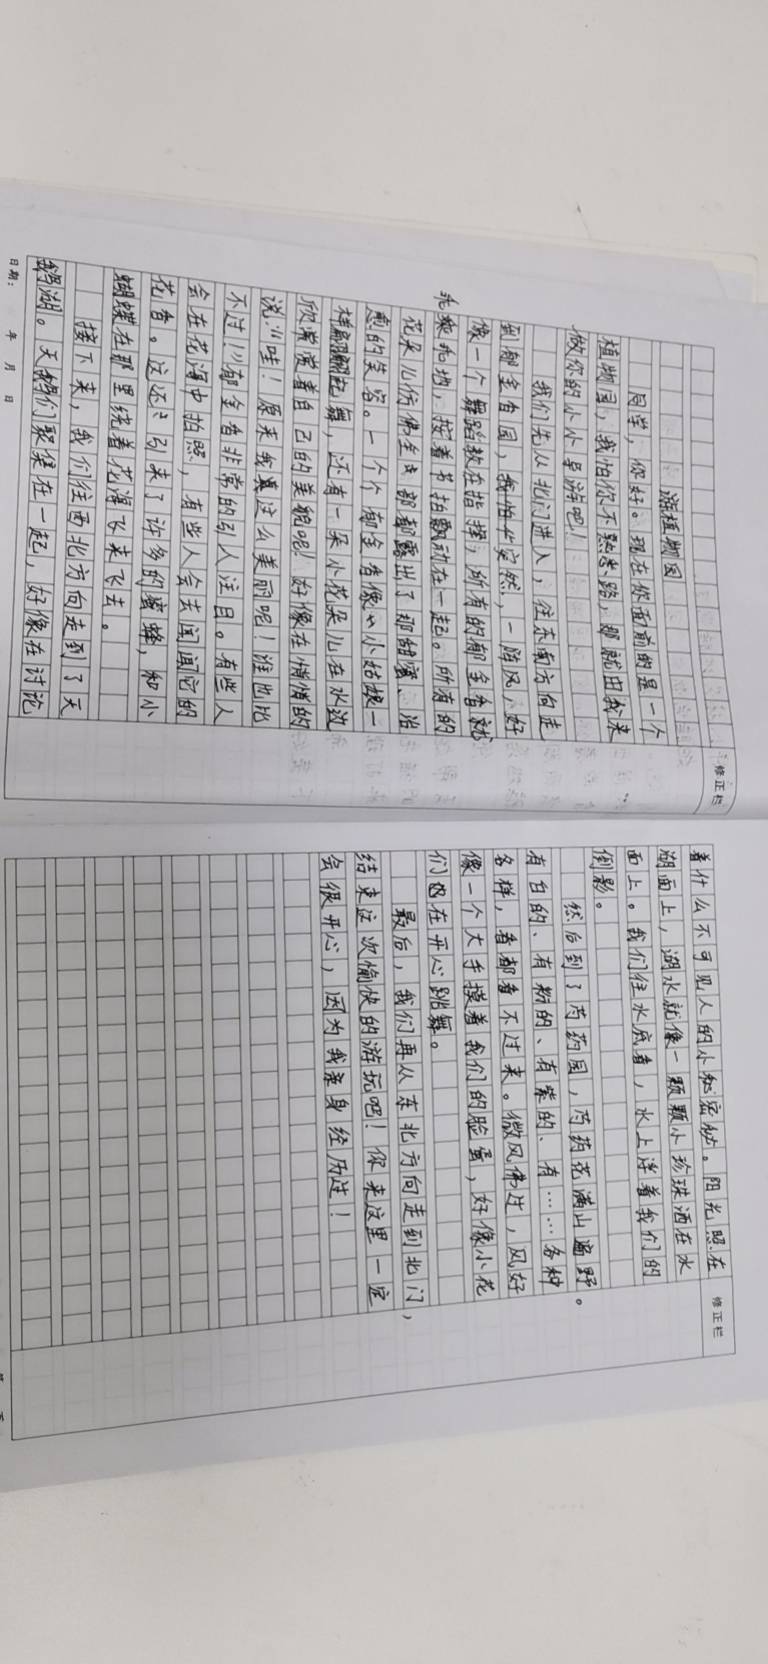 修正栏
游植物园
同学，你好。现在你面前的是一个
植物园，我怕你不熟悉路，那就由我来
做你的小小导游吧！
我们先从北门进入，往东南方向走
到郁金香园，突然，一阵风，好
像一个舞蹈教在指挥，所有的郁金香就
乖乖地，按着节拍飘动在一起。所有的
花朵儿仿佛全部都露出了那甜蜜、治
愈的笑容。一个个郁金香像小姑娘一
样翩翩起舞，还有一朵小花朵儿在水边
欣赏着自己的美貌呢！好像在悄悄的
说：“哇！原来我真这么美丽呢！谁也比
不过！”郁金香非常的引人注目。有些人
会在花海中拍照，有些人会去闻闻它的
花香。这还引来了许多的蜜蜂，和小
蝴蝶在那里绕着花海飞来飞去。
接下来，我们往西北方向走到了天
鹅湖。天鹅们聚集在一起，好像在讨论
日期： 年 月 日
修正栏
着什么不可见人的小秘密。阳光照在
湖面上，湖水就像一颗颗小珍珠洒在水
面上。我们往水底看，水上浮着我们的
倒影。
然后到了芍药园，芍药花满山遍野。
有白的、有粉的、有紫的、有……各种
各样，看都看不过来。微风佛过，风好
像一个大手摸着我们的脸蛋，好像小花
们也在开心跳舞。
最后，我们再从东北方向走到北门，
结束这次愉快的游玩吧！你来这里一定
会很开心，因为我亲身经历过！